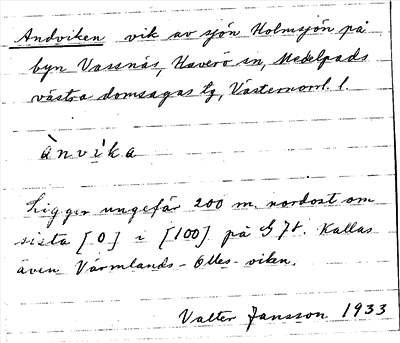 Andviken vik av sjön Holmsjön på
byn Vassnäs, Haverö sn, Medelpads
västra domsagas tg, Västernorrl. l.
ànvika
Ligger ungefär 200 m. nordost om
sista [0] i [100] på G 7t. Kallas
även Värmlands-Olles-viken.
Valter Jansson 1933